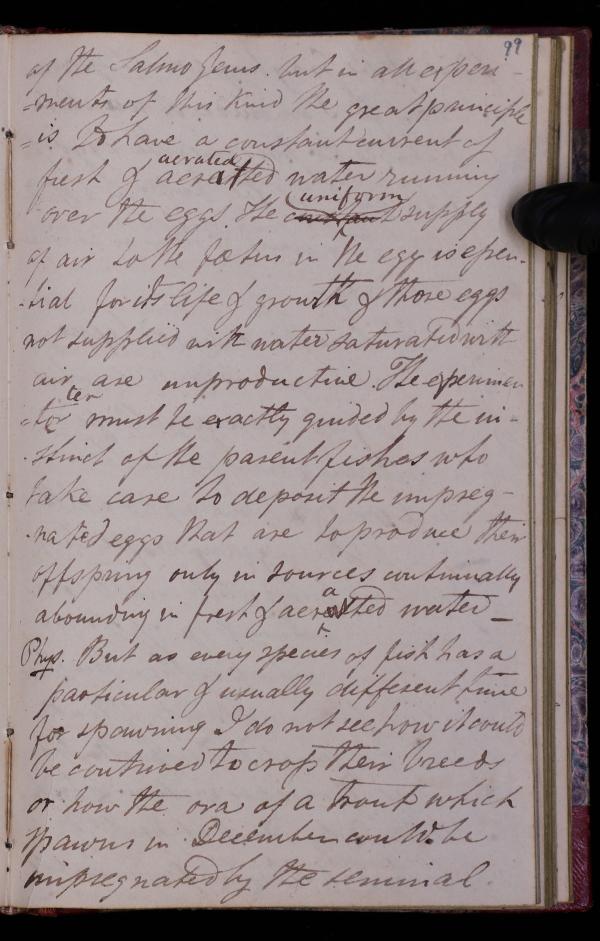 99
of the Salmo genus. but in all experi-
=ments of this kind the great principle
=is to have a constant current of
aerated
fresh & aerated water running
uniform
over the eggs. The constant supply
of air to the foetus in the egg is essen-
-tial for its life & growth & those eggs
not supplied with water saturated with
air are unproductive. The experimen
ter
-tor must be exactly guided by the in-
-stinct of the parent fishes who
take care to deposit the impreg-
-nated eggs that are to produce their
offspring only in sources continually
a
abounding in fresh & aerated water_
Phys. But as every species of fish has a
particular & usually different time
for spawning I do not see how it could
be contrived to cross their breeds
or how the ova of a trout which
spawns in December could be
impregnated by the seminal